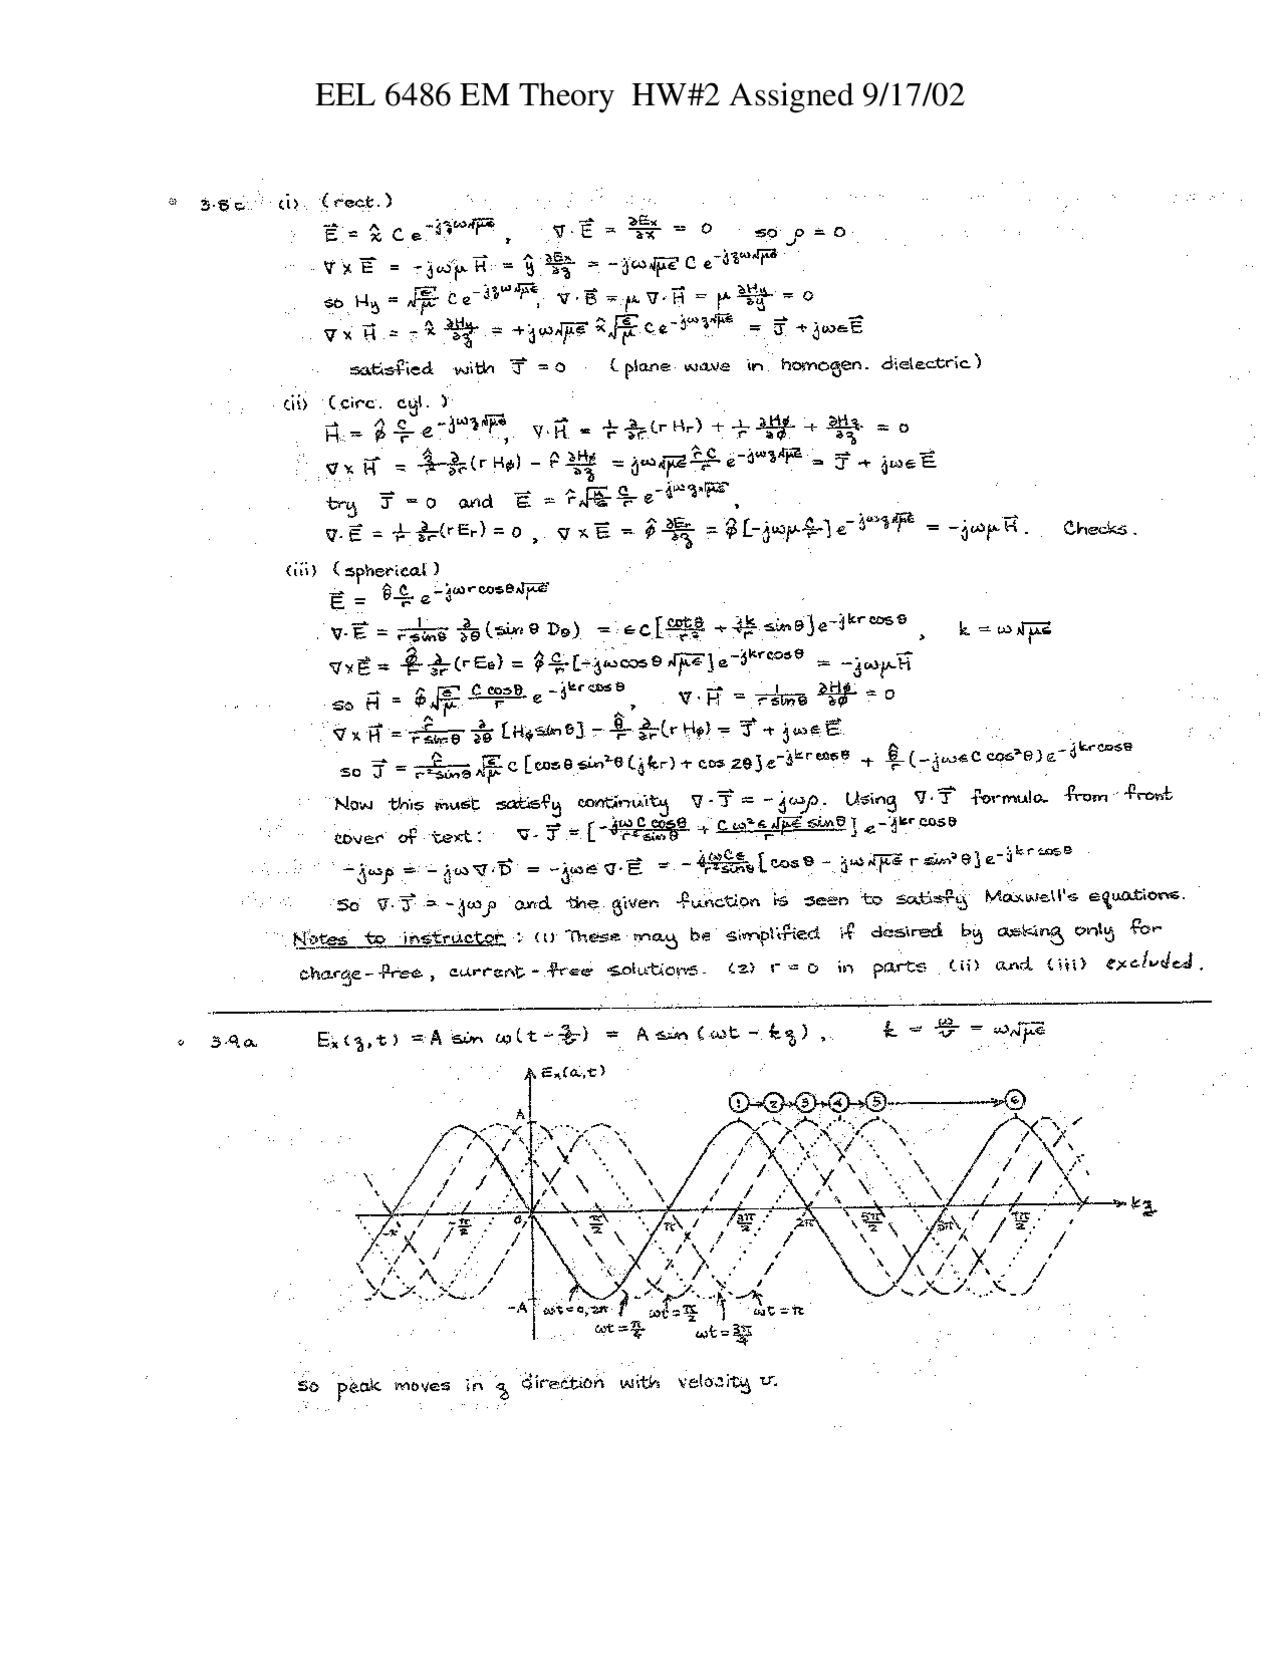 EEL 6486 EM Theory HW#2 Assigned 9/17/02
3.8c (i) (rect.)
E⃗ = x̂ C e^{-jzω√με}, ∇·E⃗ = ∂Ex/∂x = 0 so ρ = 0
∇ x E⃗ = -jωμ H⃗ = ŷ ∂Ex/∂z = -jω√με C e^{-jzω√με}
so Hy = √(ε/μ) C e^{-jzω√με}, ∇·B⃗ = μ ∇·H⃗ = μ ∂Hy/∂y = 0
∇ x H⃗ = -x̂ ∂Hy/∂z = +jω√με x̂ √(ε/μ) C e^{-jωz√με} = J⃗ + jωεE⃗
satisfied with J⃗ = 0 (plane wave in homogen. dielectric)
(ii) (circ. cyl.)
H⃗ = φ̂ C/r e^{-jωz√με}, ∇·H⃗ = 1/r ∂/∂r (r Hr) + 1/r ∂Hφ/∂φ + ∂Hz/∂z = 0
∇ x H⃗ = ẑ/r ∂/∂r (r Hφ) - r̂ ∂Hφ/∂z = jω√με r̂C/r e^{-jωz√με} = J⃗ + jωε E⃗
try J⃗ = 0 and E⃗ = r̂ √(μ/ε) C/r e^{-jωz√με},
∇·E⃗ = 1/r ∂/∂r (r Er) = 0, ∇ x E⃗ = φ̂ ∂Er/∂z = φ̂ [-jωμ C/r] e^{-jωz√με} = -jωμ H⃗. Checks.
(iii) (spherical)
E⃗ = θ̂ C/r e^{-jωr cosθ√με}
∇·E⃗ = 1/(r sinθ) ∂/∂θ (sin θ Dθ) = εC [cotθ/r² + jk/r sinθ] e^{-jkr cosθ}, k = ω√με
∇xE⃗ = φ̂/r ∂/∂r (r Eθ) = φ̂ C/r [-jω cos θ √με] e^{-jkr cosθ} = -jωμH⃗
so H⃗ = φ̂ √(ε/μ) C cosθ/r e^{-jkr cosθ}, ∇·H⃗ = 1/(r sinθ) ∂Hφ/∂φ = 0
∇ x H⃗ = r̂/(r sinθ) ∂/∂θ [Hφ sin θ] - θ̂/r ∂/∂r (r Hφ) = J⃗ + jωε E⃗
so J⃗ = r̂/(r² sinθ) √(ε/μ) C [cos θ sin²θ (jkr) + cos 2θ] e^{-jkr cosθ} + θ̂/r (-jωεC cos²θ) e^{-jkr cosθ}
Now this must satisfy continuity ∇·J⃗ = -jωρ. Using ∇·J⃗ formula from front
cover of text: ∇·J⃗ = [-jωC cosθ/(r² sinθ) + Cω²ε√με sinθ/r] e^{-jkr cosθ}
-jωρ = -jω∇·D⃗ = -jωε∇·E⃗ = -jωCε/(r² sinθ) [cos θ - jω√με r sin²θ] e^{-jkr cosθ}
So ∇·J⃗ = -jωρ and the given function is seen to satisfy Maxwell's equations.
Notes to instructor: (1) These may be simplified if desired by asking only for
charge-free, current-free solutions. (2) r = 0 in parts (ii) and (iii) excluded.
3.9a Ex(z,t) = A sin ω(t - z/v) = A sin (ωt - kz), k = ω/v = ω√με
Ex(a,t)
① ② ③ ④ ⑤ ⑥
A
-π -π/2 0 π/2 π 3π/2 2π 5π/2 3π 7π/2 kz
-A ωt=0,2π ωt=π/2 ωt=π
ωt=π/4 ωt=3π/4
so peak moves in z direction with velocity v.